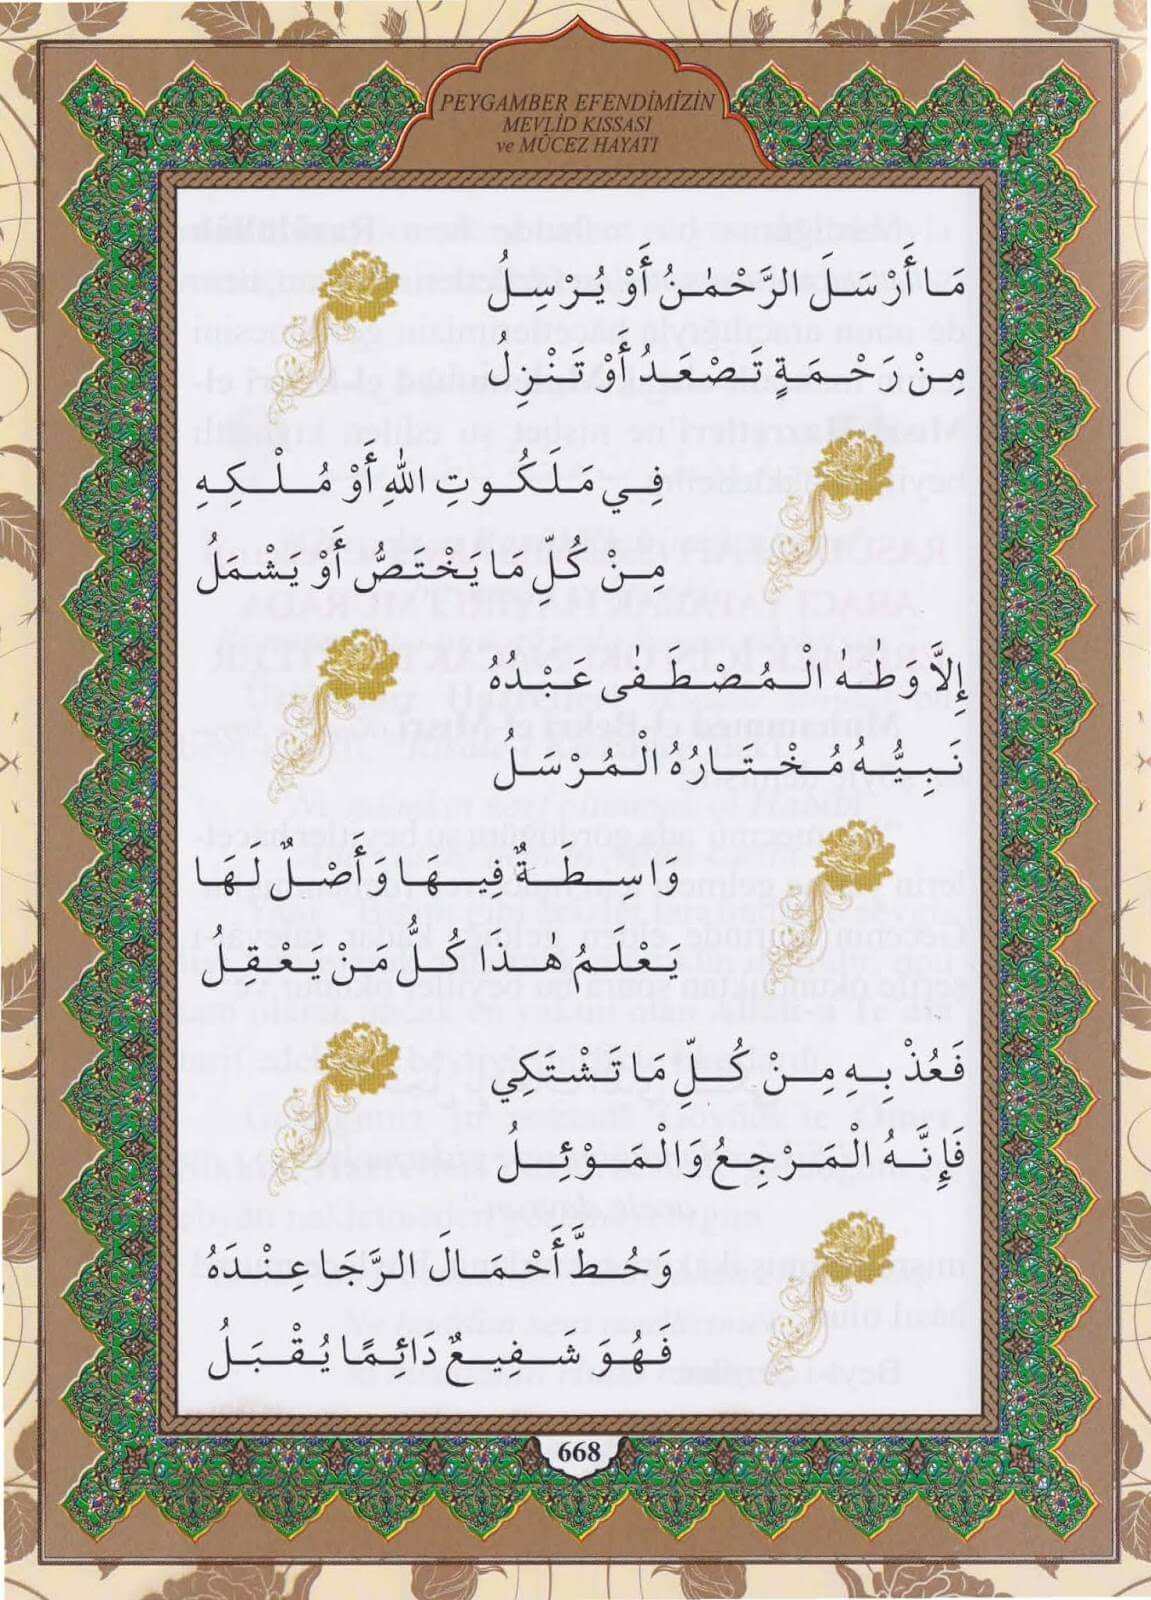 PEYGAMBER EFENDİMİZİN
MEVLİD KISSASI
ve MÛCEZ HAYATI
مَا أَرْسَلَ الرَّحْمٰنُ أَوْ يُرْسِلُ
مِنْ رَحْمَةٍ تَصْعَدُ أَوْ تَنْزِلُ
فِي مَلَكُوتِ اللهِ أَوْ مُلْكِهِ
مِنْ كُلِّ مَا يَخْتَصُّ أَوْ يَشْمَلُ
إِلَّا وَطٰهٰ الْمُصْطَفٰى عَبْدُهُ
نَبِيُّهُ مُخْتَارُهُ الْمُرْسَلُ
وَاسِطَةٌ فِيهَا وَأَصْلٌ لَهَا
يَعْلَمُ هٰذَا كُلُّ مَنْ يَعْقِلُ
فَعُذْ بِهِ مِنْ كُلِّ مَا تَشْتَكِي
فَإِنَّهُ الْمَرْجِعُ وَالْمَوْئِلُ
وَحُطَّ أَحْمَالَ الرَّجَا عِنْدَهُ
فَهُوَ شَفِيعٌ دَائِمًا يُقْبَلُ
668